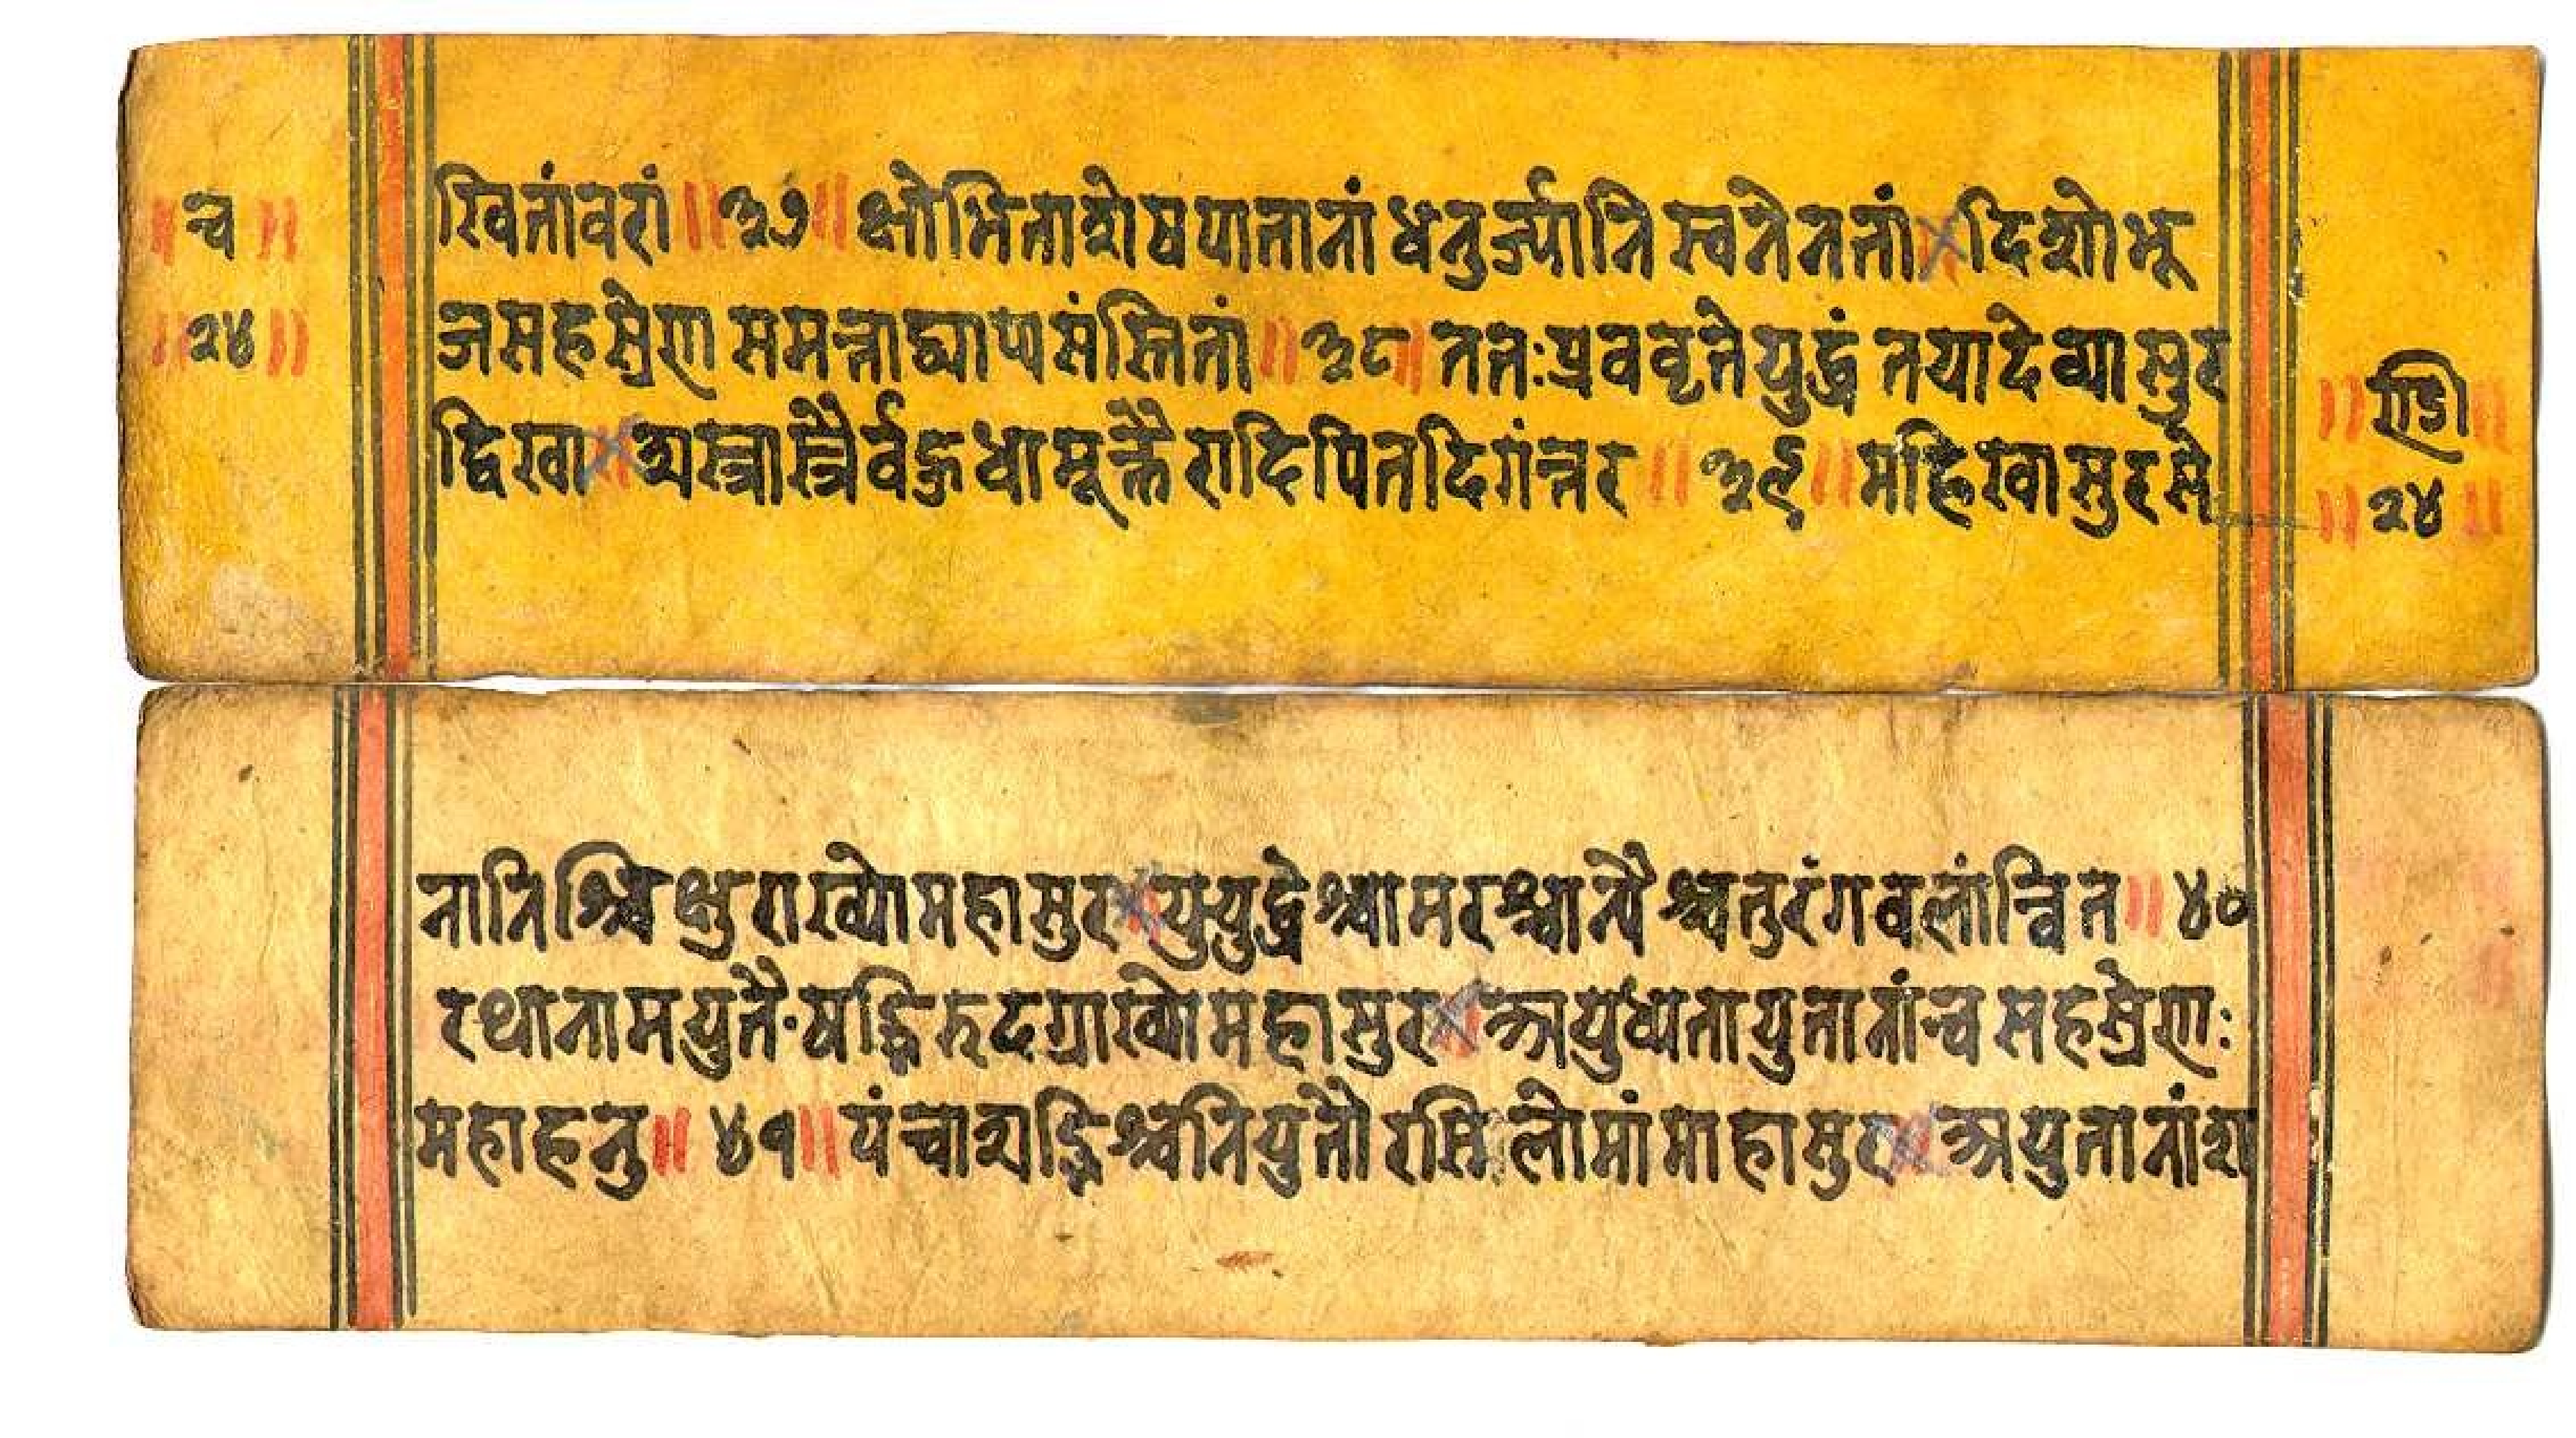 ॥ च ॥
॥ २४ ॥
खितांवरां ॥ ३७ ॥ क्षोभिताशेषपातानां धनुर्ज्यानि स्वनेनतां । दिशोभू
जसहस्रेण समन्ताद्व्याप्यसंस्तितां ॥ ३८ ॥ ततः प्रववृत्ते युद्धं तयादेव्यासुर
द्विखा । अस्त्रास्त्रैर्वहुधामूक्तैरादिपितदिगंन्तर ॥ ३९ ॥ महिखासुरसे
॥ ण्डी ॥
॥ २४ ॥
नानिश्चिक्षुराख्योमहासुर । युयुद्धेश्चामरश्चान्यैश्चतुरंगवलांन्वित ॥ ४०
रथानामयुतैःषड्भिरुदग्राख्योमहासुर । अयुध्यतायुतानांन्च सहस्रेणः
महाहनु ॥ ४१ ॥ पंन्चाशद्भिश्चनियुतौरसिलोमांमाहासुर । अयुतानांश